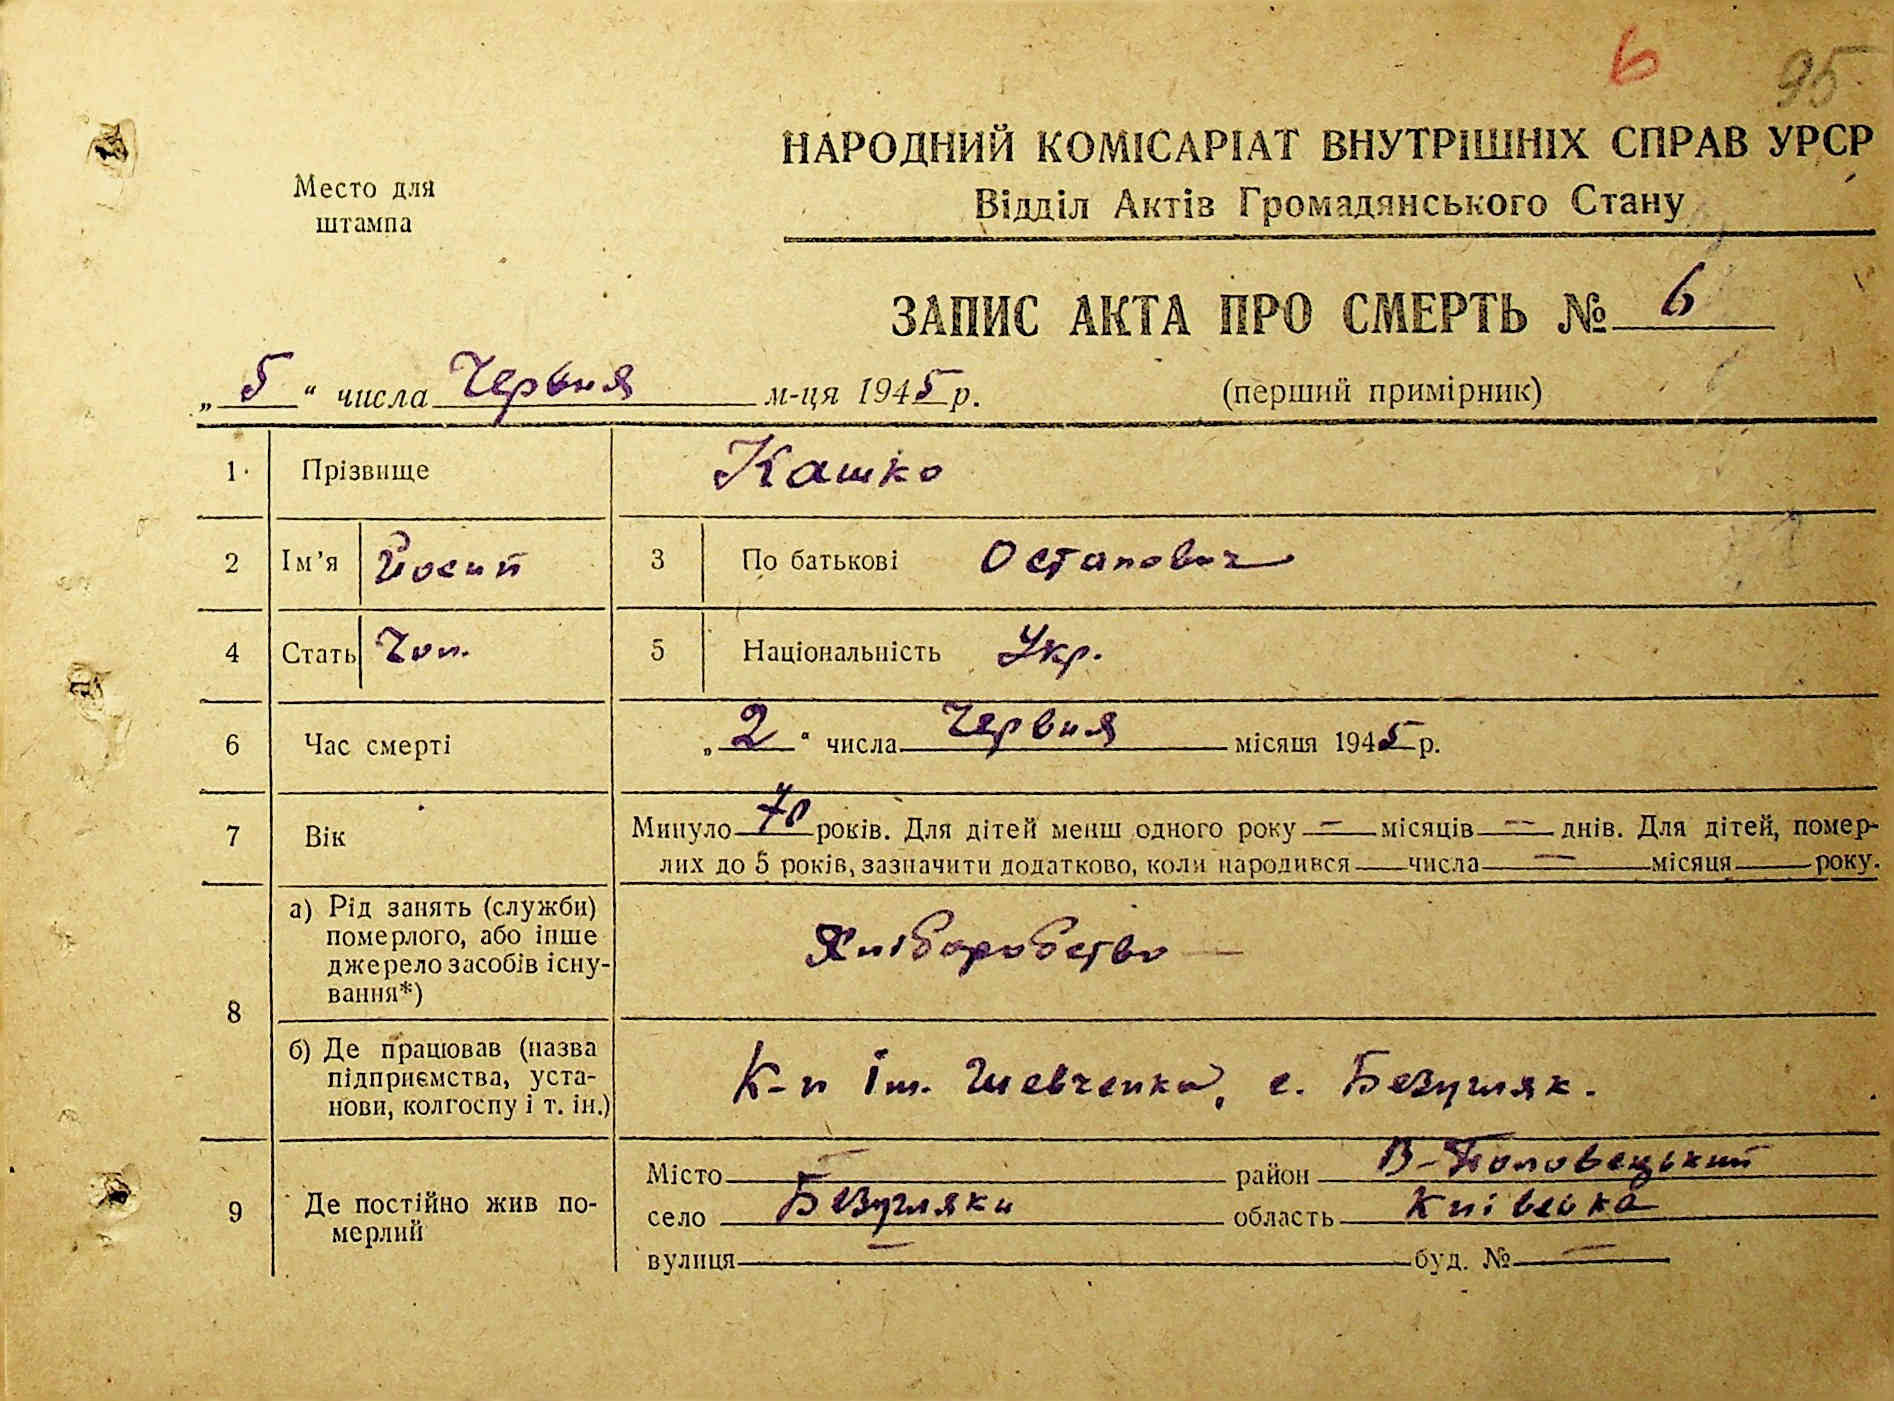 6 95
НАРОДНИЙ КОМІСАРІАТ ВНУТРІШНІХ СПРАВ УРСР
Место для
штампа
Відділ Актів Громадянського Стану
ЗАПИС АКТА ПРО СМЕРТЬ № 6
„5“ числа Червня м-ця 1945 р. (перший примірник)
1 Прізвище Кашко
2 Ім'я Йосип 3 По батькові Остапович
4 Стать Чол. 5 Національність Укр.
6 Час смерті „2“ числа Червня місяця 1945 р.
7 Вік Минуло 70 років. Для дітей менш одного року — місяців — днів. Для дітей, помер-
лих до 5 років, зазначити додатково, коли народився числа — місяця року.
8 а) Рід занять (служби)
померлого, або інше
джерело засобів існу-
вання*) Хліборобство —
б) Де працював (назва
підприємства, уста-
нови, колгоспу і т. ін.) К-п ім. Шевченка, с. Безугляк.
9 Де постійно жив по-
мерлий
Місто — район В-Половецький
село Безугляки область Київська
вулиця — буд. № —